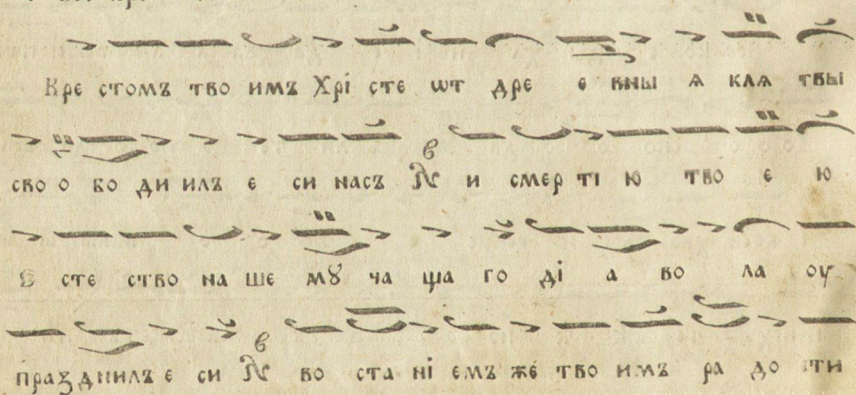 Кре стомъ тво имъ Хрі сте ѡт дре е вны ѧ клѧ твы
сво о бо ди илъ е си насъ и смер ті ю тво е ю
Е сте ство на ше мꙋ ча ща го ді а во ла оу
празднилъ е си во ста ні емъ же тво имъ ра до сти